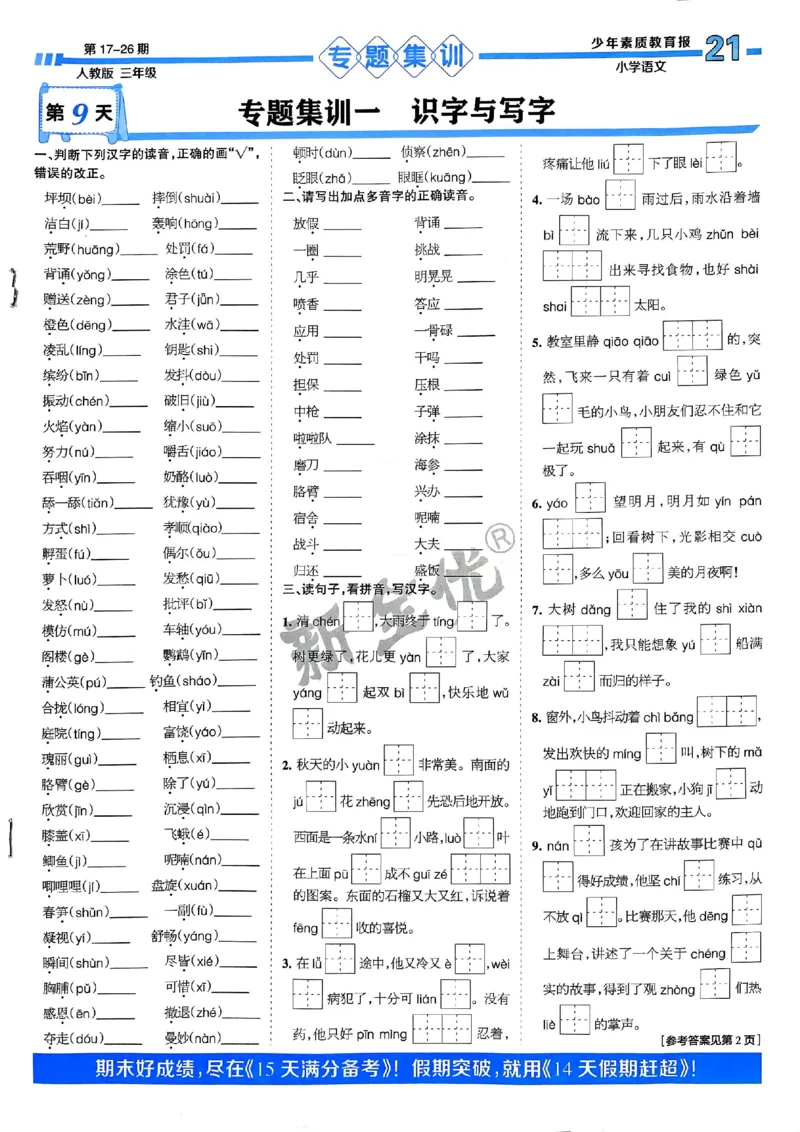 第17-26期
人教版 三年级
专题集训
少年素质教育报
小学语文
21
第9天
专题集训一 识字与写字
一、判断下列汉字的读音,正确的画“√”,
错误的改正。
坪坝(bèi)_____ 摔倒(shuài)_____
洁白(jí)_____ 轰响(hōng)_____
荒野(huāng)_____ 处罚(fá)_____
背诵(yǒng)_____ 涂色(tú)_____
赠送(zèng)_____ 君子(jǖn)_____
橙色(dēng)_____ 水洼(wā)_____
凌乱(líng)_____ 钥匙(shi)_____
缤纷(bīn)_____ 发抖(dòu)_____
振动(chén)_____ 破旧(jiù)_____
火焰(yàn)_____ 缩小(suō)_____
努力(nú)_____ 嚼舌(jiáo)_____
吞咽(yīn)_____ 奶酪(luò)_____
舔一舔(tiǎn)_____ 犹豫(yù)_____
方式(shì)_____ 孝顺(qiào)_____
孵蛋(fú)_____ 偶尔(ǒu)_____
萝卜(luó)_____ 发愁(qiū)_____
发怒(nù)_____ 批评(bī)_____
模仿(mú)_____ 车轴(yóu)_____
阁楼(gè)_____ 鹦鹉(yīn)_____
蒲公英(pú)_____ 钓鱼(sháo)_____
合拢(lóng)_____ 相宜(yì)_____
庭院(tíng)_____ 富饶(yáo)_____
瑰丽(guì)_____ 栖息(xī)_____
胳臂(gè)_____ 除了(yú)_____
欣赏(jīn)_____ 沉浸(qìn)_____
膝盖(xī)_____ 飞蛾(é)_____
鲫鱼(jì)_____ 呢喃(nán)_____
唧哩哩(jí)_____ 盘旋(xuán)_____
春笋(shǔn)_____ 一副(fù)_____
凝视(yí)_____ 舒畅(yáng)_____
瞬间(shùn)_____ 尽皆(xié)_____
胸脯(pǔ)_____ 可惜(xī)_____
感恩(ēn)_____ 撤退(zhé)_____
夺走(dóu)_____ 曼妙(nàn)_____
顿时(dùn)_____ 侦察(zhēn)_____
眨眼(zhǎ)_____ 眼眶(kuāng)_____
二、请写出加点多音字的正确读音。
放假_____ 背诵_____
一圈_____ 挑战_____
几乎_____ 明晃晃_____
喷香_____ 答应_____
应用_____ 一骨碌_____
处罚_____ 干吗_____
担保_____ 压根_____
中枪_____ 子弹_____
啦啦队_____ 涂抹_____
磨刀_____ 海参_____
胳臂_____ 兴办_____
宿舍_____ 呢喃_____
战斗_____ 大夫_____
归还_____ 盛饭_____
三、读句子,看拼音,写汉字。
1. 清 chén ,大雨终于 tíng 了。
树更绿了,花儿更 yàn 了,大家
yáng 起双 bì ,快乐地 wǔ
动起来。
2. 秋天的小 yuàn 非常美。南面的
jú 花 zhēng 先恐后地开放。
西面是一条水 ní 小路,luò 叶
在上面 pū 成不 guī zé
的图案。东面的石榴又大又红,诉说着
fēng 收的喜悦。
3. 在 lǚ 途中,他又冷又 è ,wèi
病犯了,十分可 lián 。没有
药,他只好 pīn mìng 忍着,
疼痛让他 liú 下了眼 lèi 。
4. 一场 bào 雨过后,雨水沿着墙
bì 流下来,几只小鸡 zhǔn bèi
出来寻找食物,也好 shài
shai 太阳。
5. 教室里静 qiāo qiāo 的,突
然,飞来一只有着 cuì 绿色 yǔ
毛的小鸟,小朋友们忍不住和它
一起玩 shuǎ 起来,有 qù
极了。
6. yáo 望明月,明月如 yín pán
;回看树下,光影相交 cuò
,多么 yōu 美的月夜啊!
7. 大树 dǎng 住了我的 shì xiàn
,我只能想象 yú 船满
zài 而归的样子。
8. 窗外,小鸟抖动着 chì bǎng ,
发出欢快的 míng 叫,树下的 mǎ
yǐ 正在搬家,小狗 jī 动
地跑到门口,欢迎回家的主人。
9. nán 孩为了在讲故事比赛中 qǔ
得好成绩,他坚 chí 练习,从
不放 qì 。比赛那天,他 dēng
上舞台,讲述了一个关于 chéng
实的故事,得到了观 zhòng 们热
liè 的掌声。
[参考答案见第2页]
新全优®
期末好成绩,尽在《15天满分备考》!假期突破,就用《14天假期赶超》!